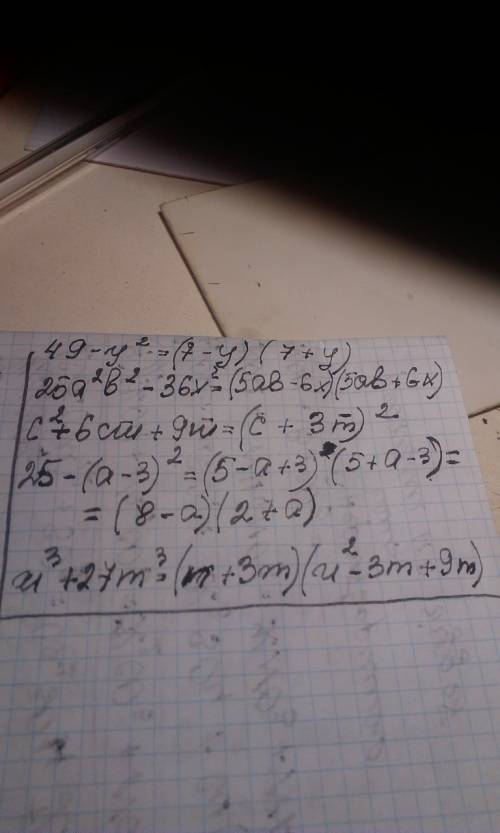 49-y²=(7-y)(7+y)
25a²b²-36x²=(5ab-6x)(5ab+6x)
c²+6cm+9m=(c+3m)²
25-(a-3)²=(5-a+3)·(5+a-3)=
=(8-a)(2+a)
n³+27m³=(n+3m)(n²-3m+9m)